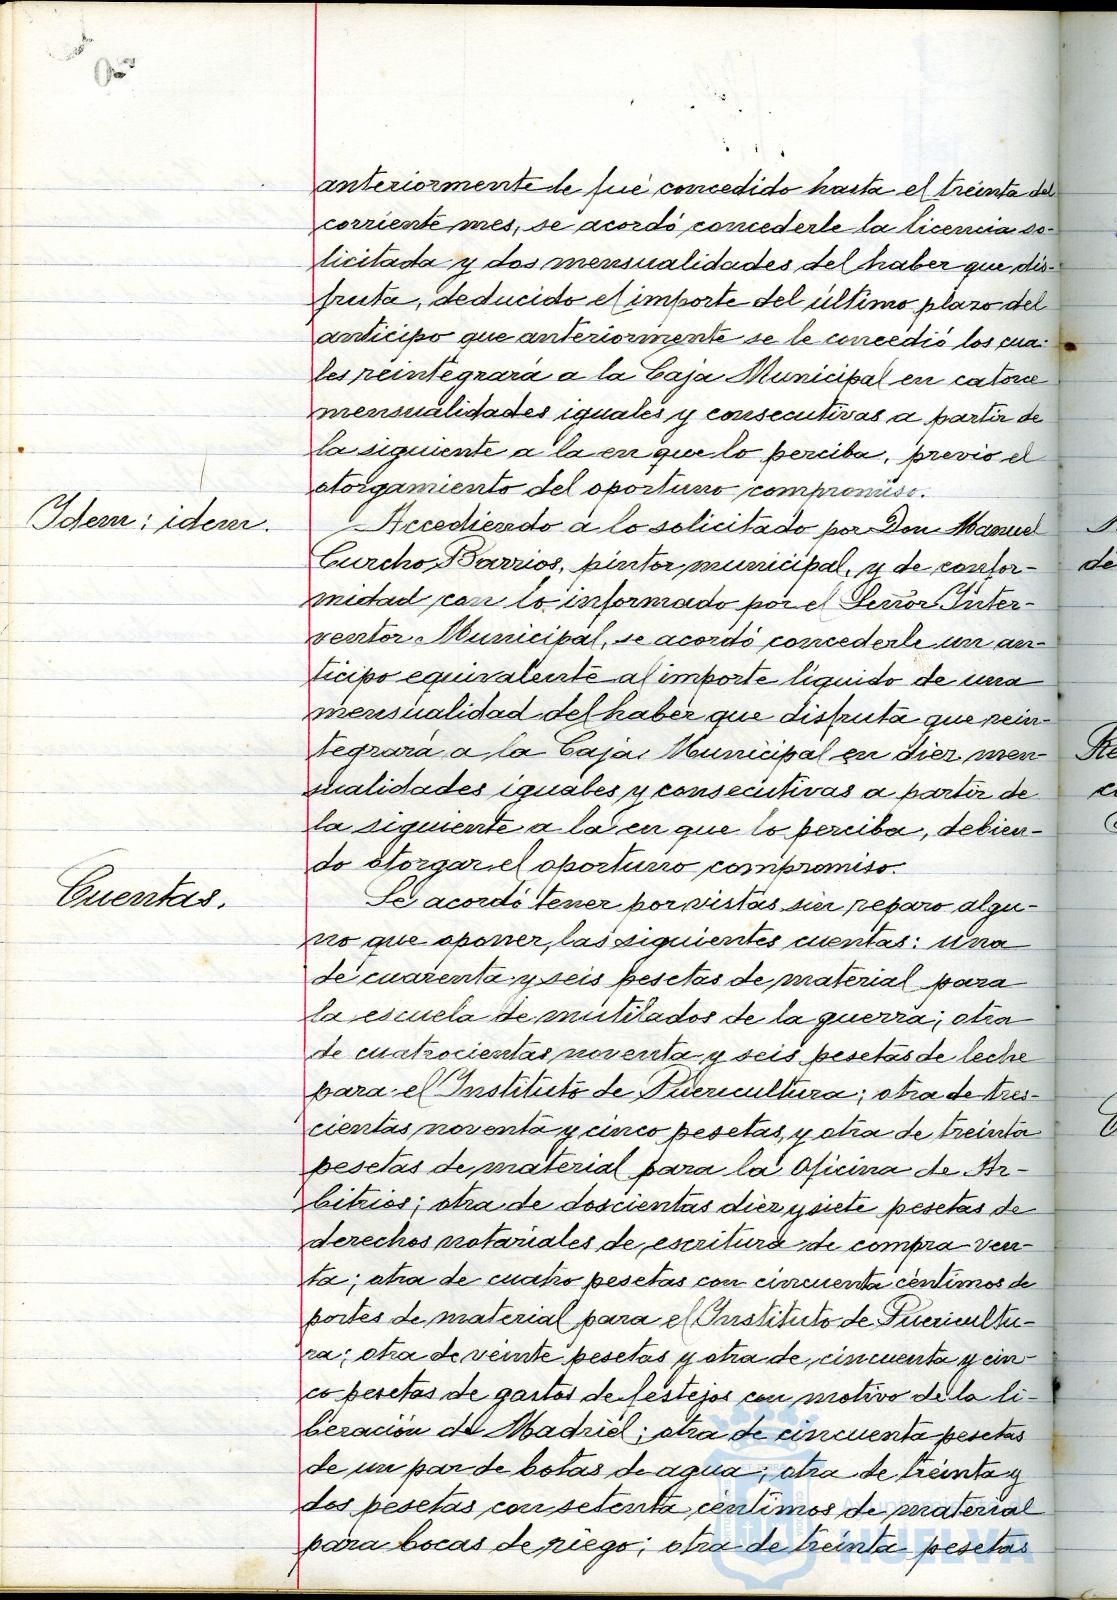 anteriormente le fué concedido hasta el treinta del
corriente mes, se acordó concederle la licencia so-
licitada y dos mensualidades del haber que dis-
fruta, deducido el importe del último plazo del
anticipo que anteriormente se le concedió los cua-
les reintegrará a la Caja Municipal en catorce
mensualidades iguales y consecutivas a partir de
la siguiente a la en que lo perciba, previo el
otorgamiento del oportuno compromiso.
Idem: idem.
Accediendo a lo solicitado por Don Manuel
Curcho Barrios, pintor municipal, y de confor-
midad con lo informado por el Señor Inter-
ventor Municipal, se acordó concederle un an-
ticipo equivalente al importe líquido de una
mensualidad del haber que disfruta que rein-
tegrará a la Caja Municipal en diez men-
sualidades iguales y consecutivas a partir de
la siguiente a la en que lo perciba, debien-
do otorgar el oportuno compromiso.
Cuentas.
Se acordó tener por vistas sin reparo algu-
no que oponer, las siguientes cuentas: una
de cuarenta y seis pesetas de material para
la escuela de mutilados de la guerra; otra
de cuatrocientas noventa y seis pesetas de leche
para el Instituto de Puericultura; otra de tres-
cientas noventa y cinco pesetas, y otra de treinta
pesetas de material para la Oficina de Ar-
bitrios; otra de doscientas diez y siete pesetas de
derechos notariales de escritura de compra-ven-
ta; otra de cuatro pesetas con cincuenta céntimos de
portes de material para el Instituto de Puericultu-
ra; otra de veinte pesetas y otra de cincuenta y cin-
co pesetas de gastos de festejos con motivo de la li-
beración de Madrid; otra de cincuenta pesetas
de un par de botas de agua; otra de treinta y
dos pesetas con setenta céntimos de material
para bocas de riego; otra de treinta pesetas
HUELVA